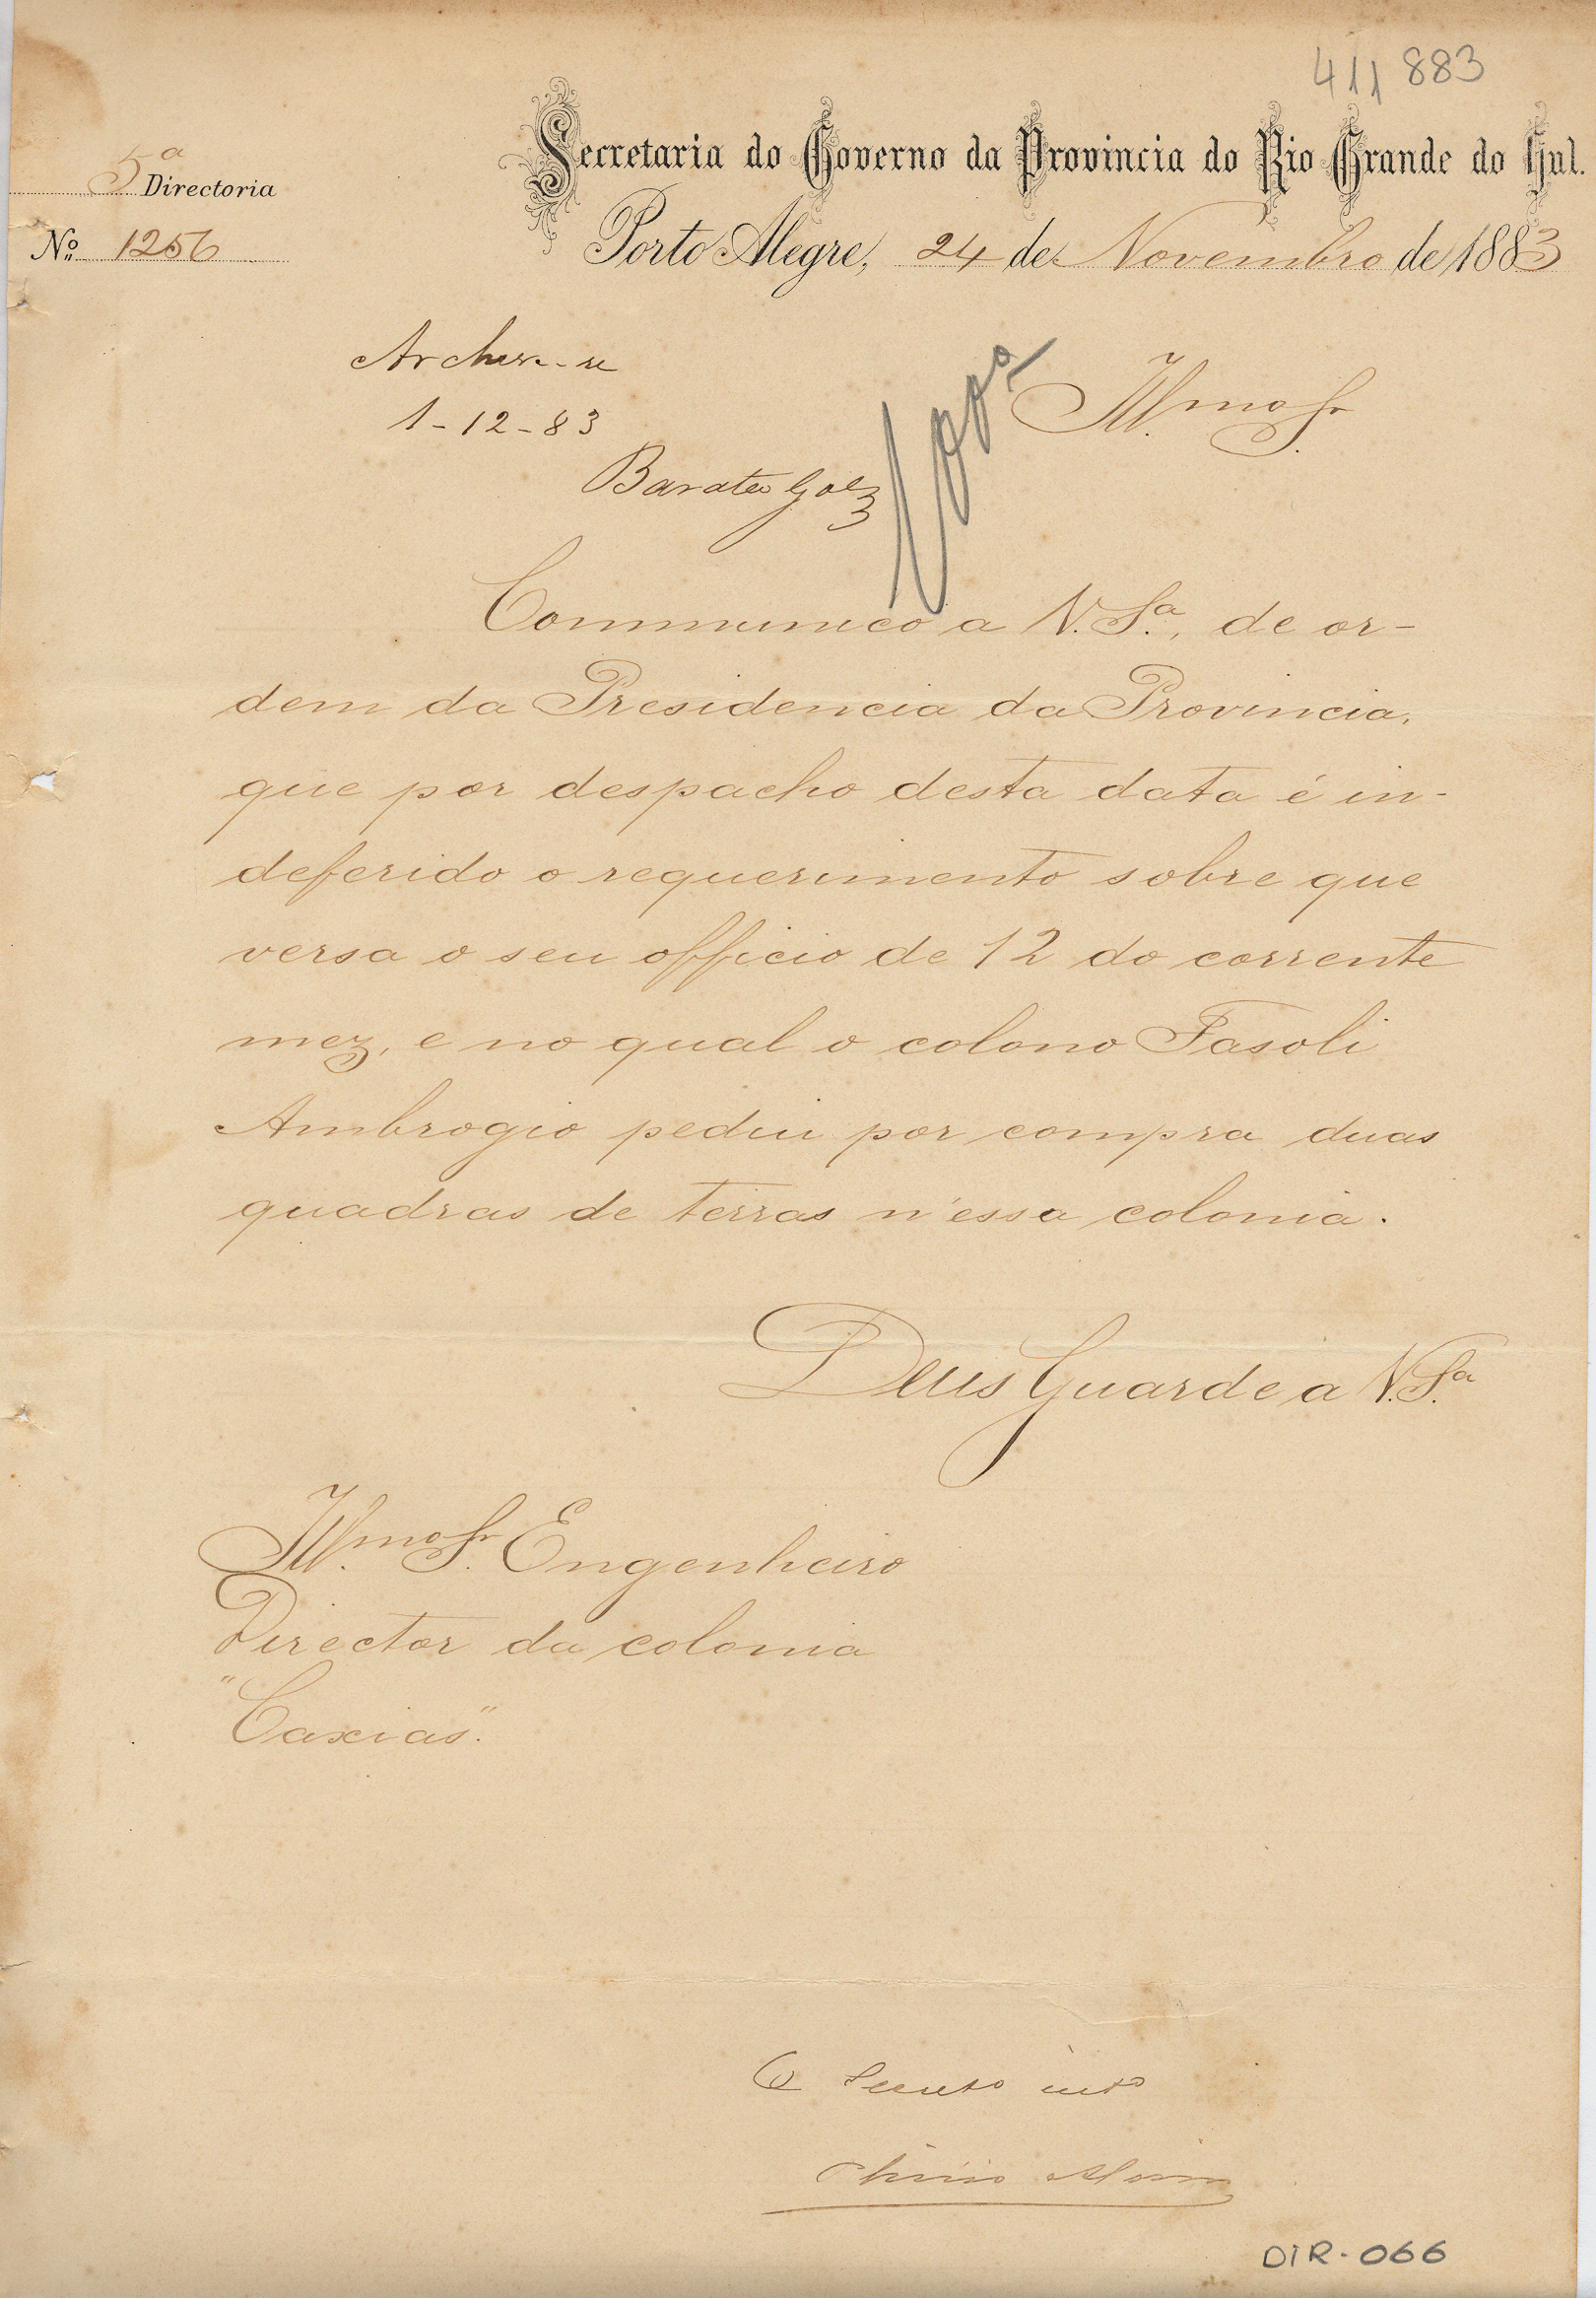 411 883
Secretaria do Governo da Provincia do Rio Grande do Sul.
5ª Directoria
Nº 1256
Porto Alegre, 24 de Novembro de 1883
Archive-se
1-12-83
Illmo Sr.
Communico a V. Sª, de or-
dem da Presidencia da Provincia,
que por despacho desta data é in-
deferido o requerimento sobre que
versa o seu officio de 12 do corrente
mez, e no qual o colono Fasoli
Ambrogio pediu por compra duas
quadras de terras n'essa colonia.
Deus Guarde a V. Sª
Illmo Sr. Engenheiro
Director da colonia
"Caxias".
O
DIR-066